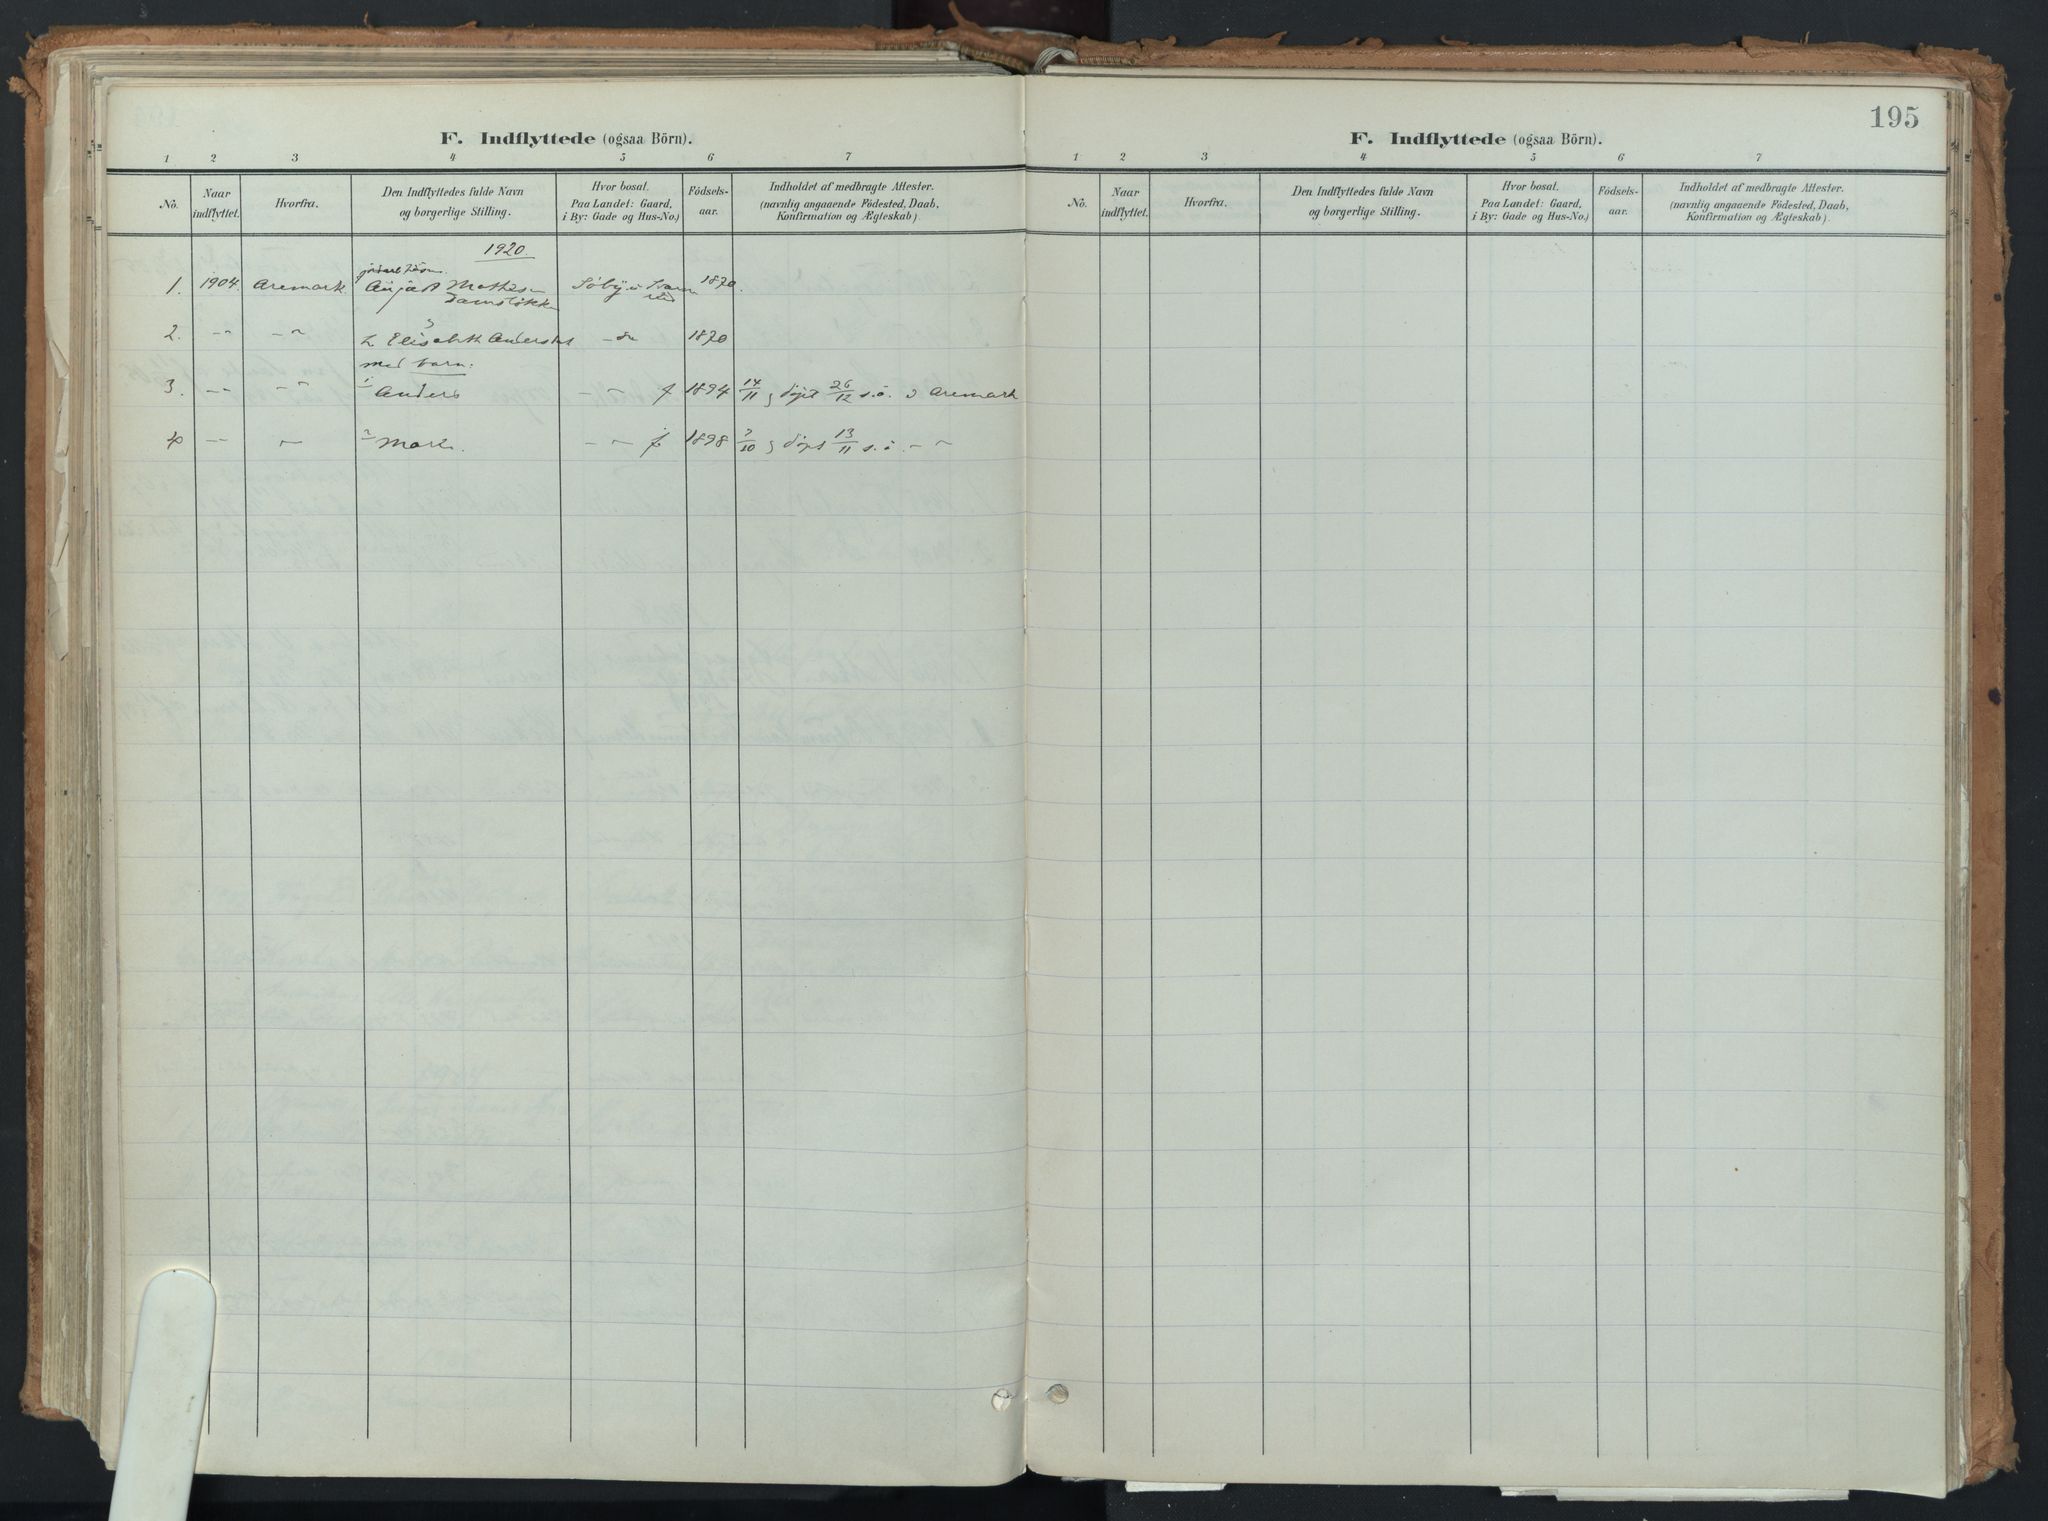 195
F. Indflyttede (ogsaa Börn).
1 2 3 4 5 6 7
No. Naar indflyttet. Hvorfra. Den Indflyttedes fulde Navn og borgerlige Stilling. Hvor bosat. Paa Landet: Gaard, i By: Gade og Hus-No.) Födsels-aar. Indholdet af medbragte Attester. (navnlig angaaende Födested, Daab, Konfirmation og Ægteskab).
1920
1. 1904 Aremark Mathisen 1870.
2. -"- -"- Elisabeth 1870
med barn:
3. -"- -"- 1 Anders -"- f 1894 14/11 døpt 26/12 s.å. i Aremark
4 -"- -"- 2 -"- f 1898 7/10 døpt 13/11 s.å. -"-
F. Indflyttede (ogsaa Börn).
1 2 3 4 5 6 7
No. Naar indflyttet. Hvorfra. Den Indflyttedes fulde Navn og borgerlige Stilling. Hvor bosat. Paa Landet: Gaard, i By: Gade og Hus-No.) Födsels-aar. Indholdet af medbragte Attester. (navnlig angaaende Födested, Daab, Konfirmation og Ægteskab).